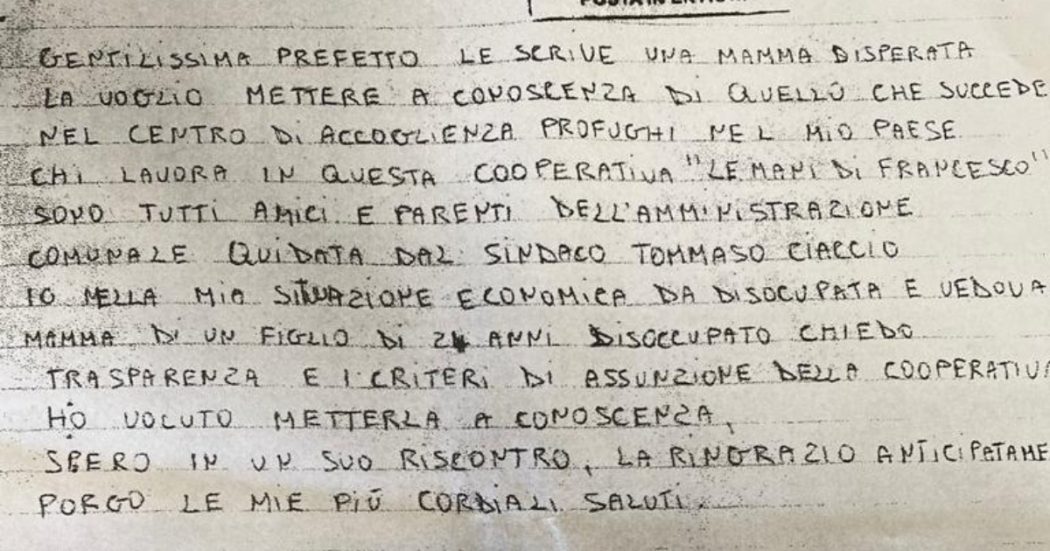 POSTA IN ENTRATA
GENTILISSIMA PREFETTO LE SCRIVE UNA MAMMA DISPERATA
LA VOGLIO METTERE A CONOSCENZA DI QUELLO CHE SUCCEDE
NEL CENTRO DI ACCOGLIENZA PROFUGHI NEL MIO PAESE
CHI LAVORA IN QUESTA COOPERATIVA "LE MANI DI FRANCESCO"
SONO TUTTI AMICI E PARENTI DELL'AMMINISTRAZIONE
COMUNALE QUIDATA DAL SINDACO TOMMASO CIACCIO
IO NELLA MIA SITUAZIONE ECONOMICA DA DISOCUPATA E VEDOVA
MAMMA DI UN FIGLIO DI 24 ANNI DISOCCUPATO CHIEDO
TRASPARENZA E I CRITERI DI ASSUNZIONE DELLA COOPERATIVA
HO VOLUTO METTERLA A CONOSCENZA,
SPERO IN UN SUO RISCONTRO, LA RINGRAZIO ANTICIPATAME
PORGO LE MIE PIÙ CORDIALI SALUTI.